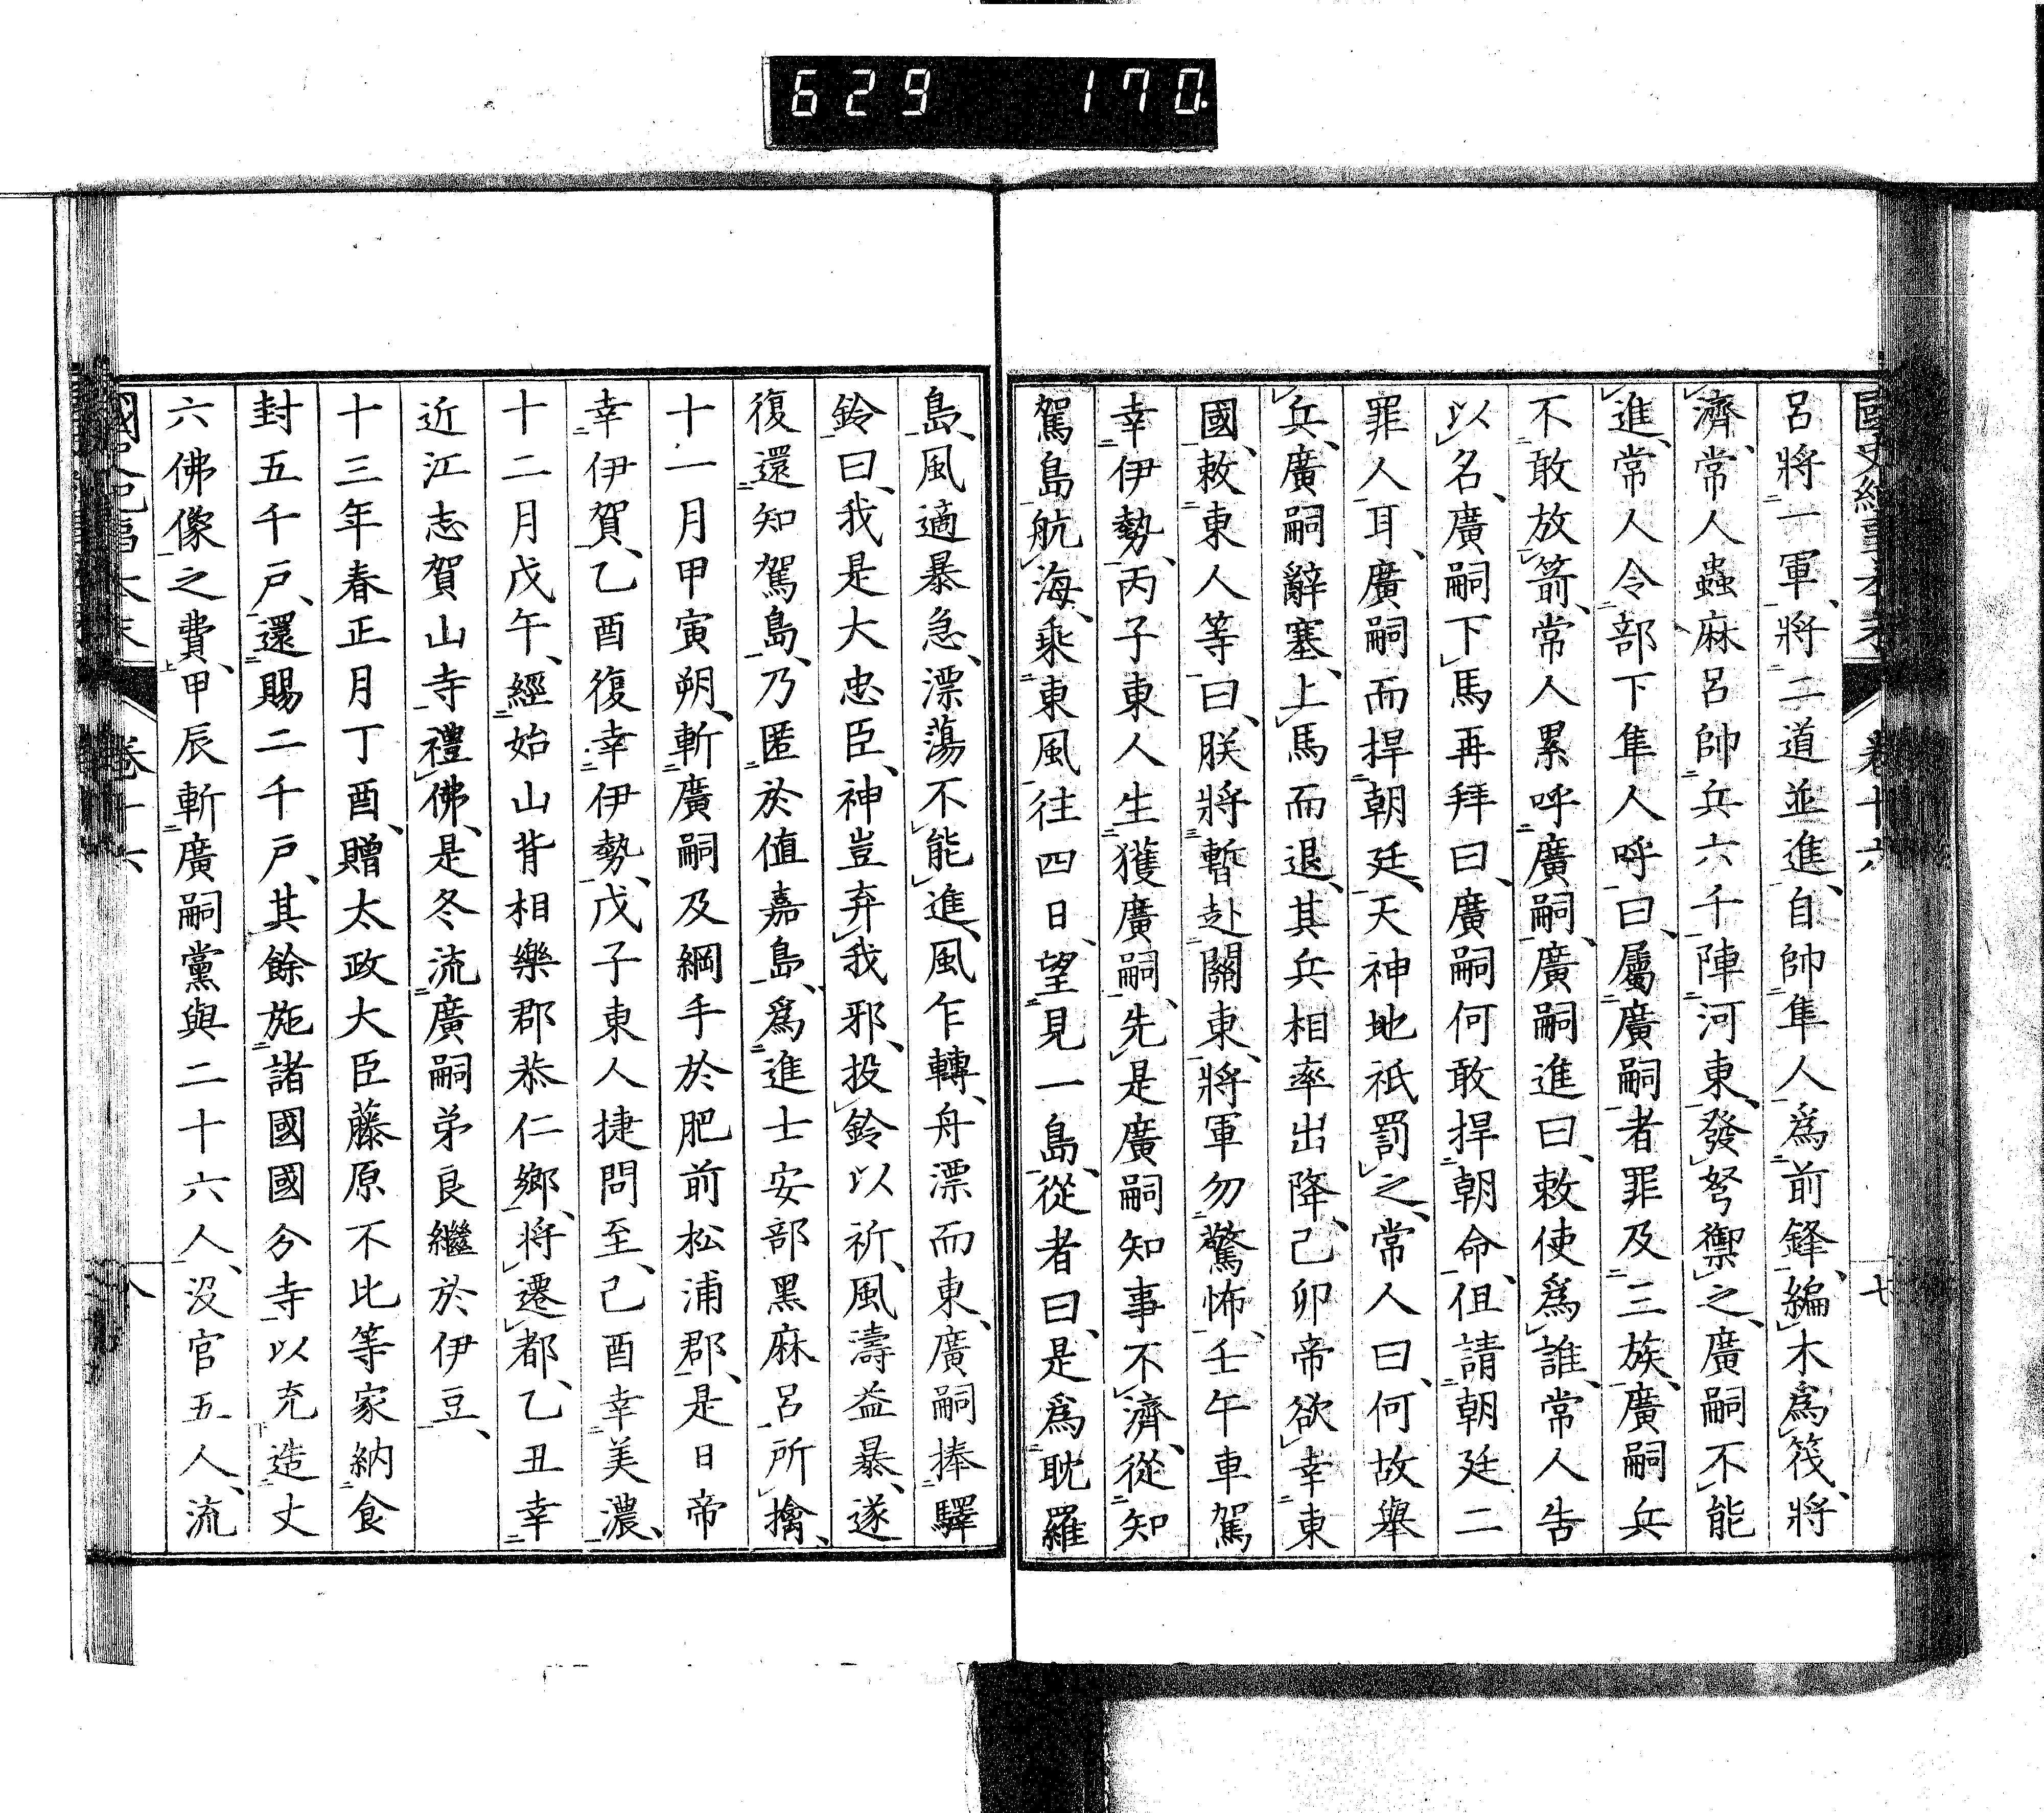 629 170
國史紀事本末 卷十六 七
呂將一軍、將二道並進、自帥隼人爲前鋒、編木爲筏、將
濟、常人蟲麻呂帥兵六千陣河東、發弩禦之、廣嗣不能
進、常人令部下隼人呼曰、屬廣嗣者罪及三族、廣嗣兵
不敢放箭、常人累呼廣嗣、廣嗣進曰、敕使爲誰、常人告
以名、廣嗣下馬再拜曰、廣嗣何敢捍朝命、但請朝廷二
罪人耳、廣嗣而捍朝廷、天神地祇罰之、常人曰、何故舉
兵、廣嗣辭塞、上馬而退、其兵相率出降、己卯帝欲幸東
國、敕東人等曰、朕將暫赴關東、將軍勿驚怖、壬午車駕
幸伊勢、丙子東人生獲廣嗣、先是廣嗣知事不濟、從知
駕島航海、乘東風往四日、望見一島、從者曰、是爲耽羅
島、風適暴急、漂蕩不能進、風乍轉、舟漂而東、廣嗣捧驛
鈴曰、我是大忠臣、神豈弃我邪、投鈴以祈、風濤益暴、遂
復還知駕島、乃匿於値嘉島、爲進士安部黑麻呂所擒、
十一月甲寅朔、斬廣嗣及綱手於肥前松浦郡、是日帝
幸伊賀、乙酉復幸伊勢、戊子東人捷問至、己酉幸美濃、
十二月戊午、經始山背相樂郡恭仁鄉、將遷都、乙丑幸
近江志賀山寺禮佛、是冬流廣嗣弟良繼於伊豆、
十三年春正月丁酉、贈太政大臣藤原不比等家納食
封五千戶、還賜二千戶、其餘施諸國國分寺以充造丈
六佛像之費、甲辰斬廣嗣黨與二十六人、沒官五人、流
國史紀事本末 卷十六 八